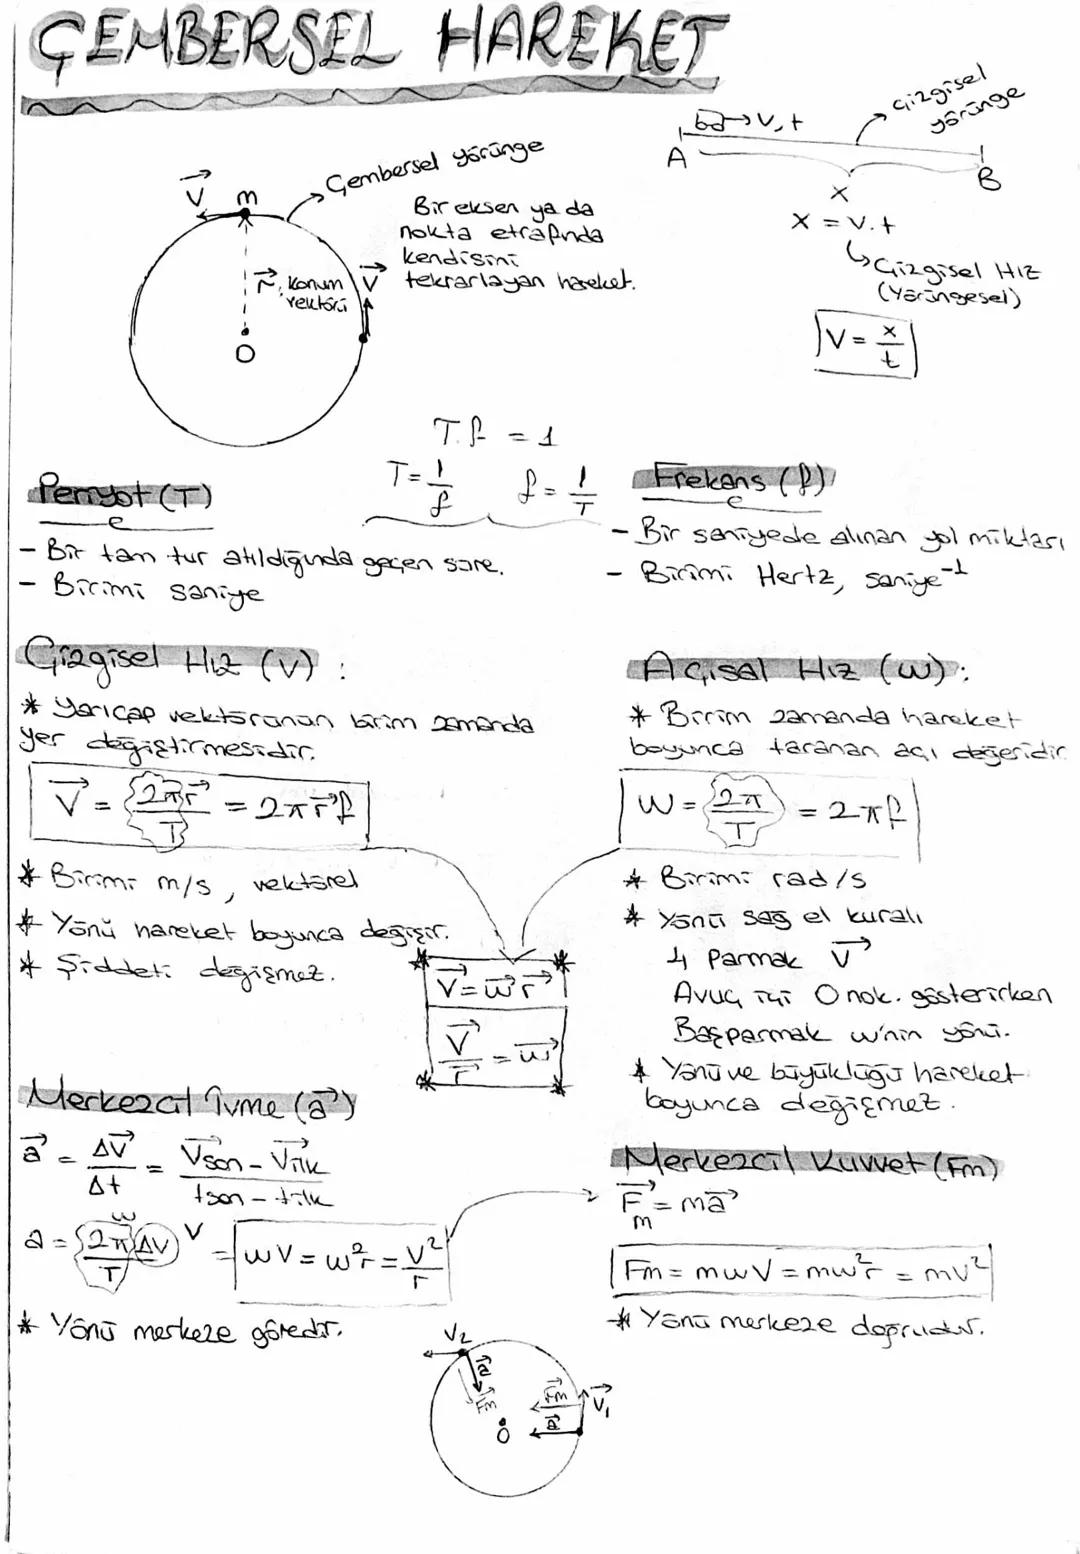 ÇEMBERSEL HAREKET
V, t
Çizgisel
yörünge
A
B
X
X = V.t
Çizgisel Hız
(Yörüngesel)
V = x/t
V
m
Çembersel yörünge
Bir eksen ya da
nokta etrafında
kendisini
tekrarlayan hareket.
r, konum
vektörü
V
O
T.f = 1
T = 1/f
f = 1/T
Periyot (T)
e
- Bir tam tur atıldığında geçen süre.
- Birimi saniye
Frekans (f)
e
- Bir saniyede alınan yol miktarı
- Birimi Hertz, saniye⁻¹
Çizgisel Hız (V) :
* Yarıçap vektörünün birim zamanda
yer değiştirmesidir.
V = 2πr/T = 2πrf
* Birimi m/s, vektörel
* Yönü hareket boyunca değişir.
* Şiddeti değişmez.
Açısal Hız (w) :
* Birim zamanda hareket
boyunca taranan açı değeridir
w = 2π/T = 2πf
* Birimi rad/s
* Yönü sağ el kuralı
4 Parmak V
Avuç içi O nok. gösterirken
Başparmak w'nin yönü.
* Yönü ve büyüklüğü hareket
boyunca değişmez.
V = w r
V/r = w
Merkezcil İvme (a)
a = ΔV/Δt = Vson - Vilk / tson - tilk
w
a = 2π/T ΔV V = wV = w²r = V²/r
* Yönü merkeze göredir.
Merkezcil Kuvvet (Fm)
Fm = ma
Fm = mwV = mw²r = mV²
* Yönü merkeze doğrudur.
V2
a
Fm
Fm
a
V1
O